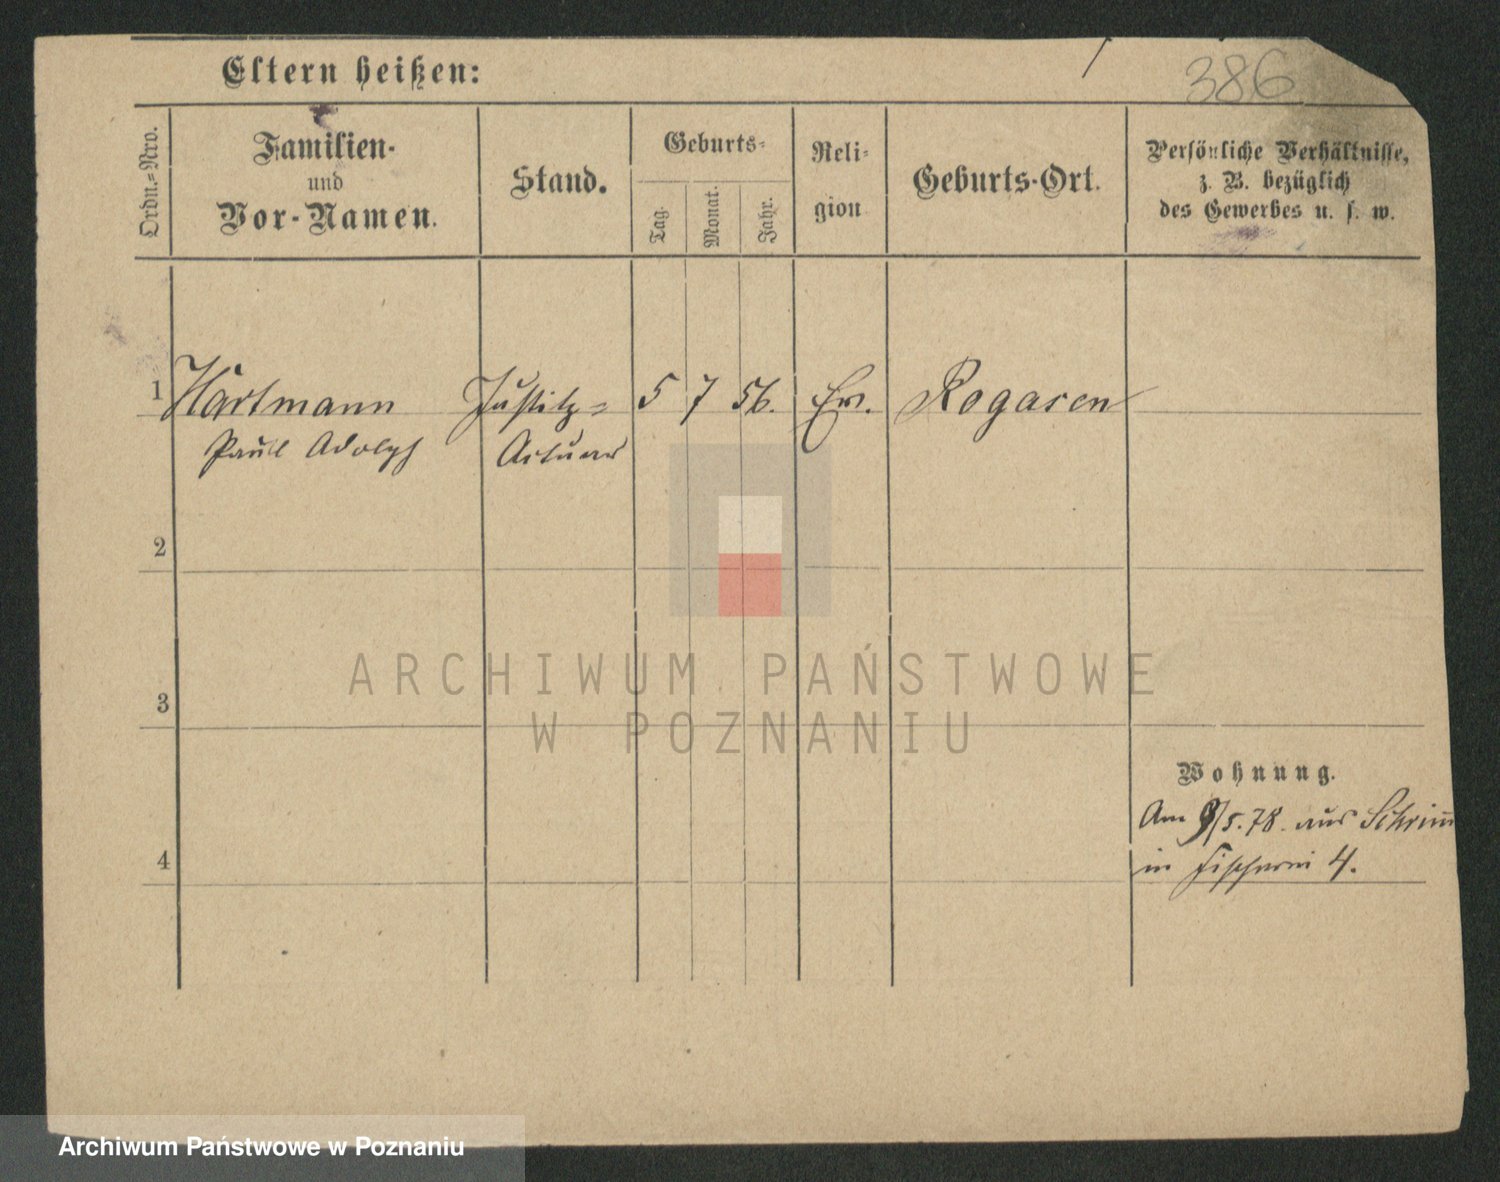 Eltern heißen:
386
Ordn.-Nro.
Familien-
und
Vor-Namen.
Stand.
Geburts-
Tag.
Monat.
Jahr.
Reli-
gion
Geburts-Ort.
Persönliche Verhältnisse,
z. B. bezüglich
des Gewerbes u. s. w.
1 Hartmann Justitz= 5 7 56. Ev. Rogasen
Paul Adolph Actuar
2
ARCHIWUM PAŃSTWOWE
3
W POZNANIU
Wohnung.
Am 9/5.78. aus Schrimm
in Fischerei 4.
4
Archiwum Państwowe w Poznaniu